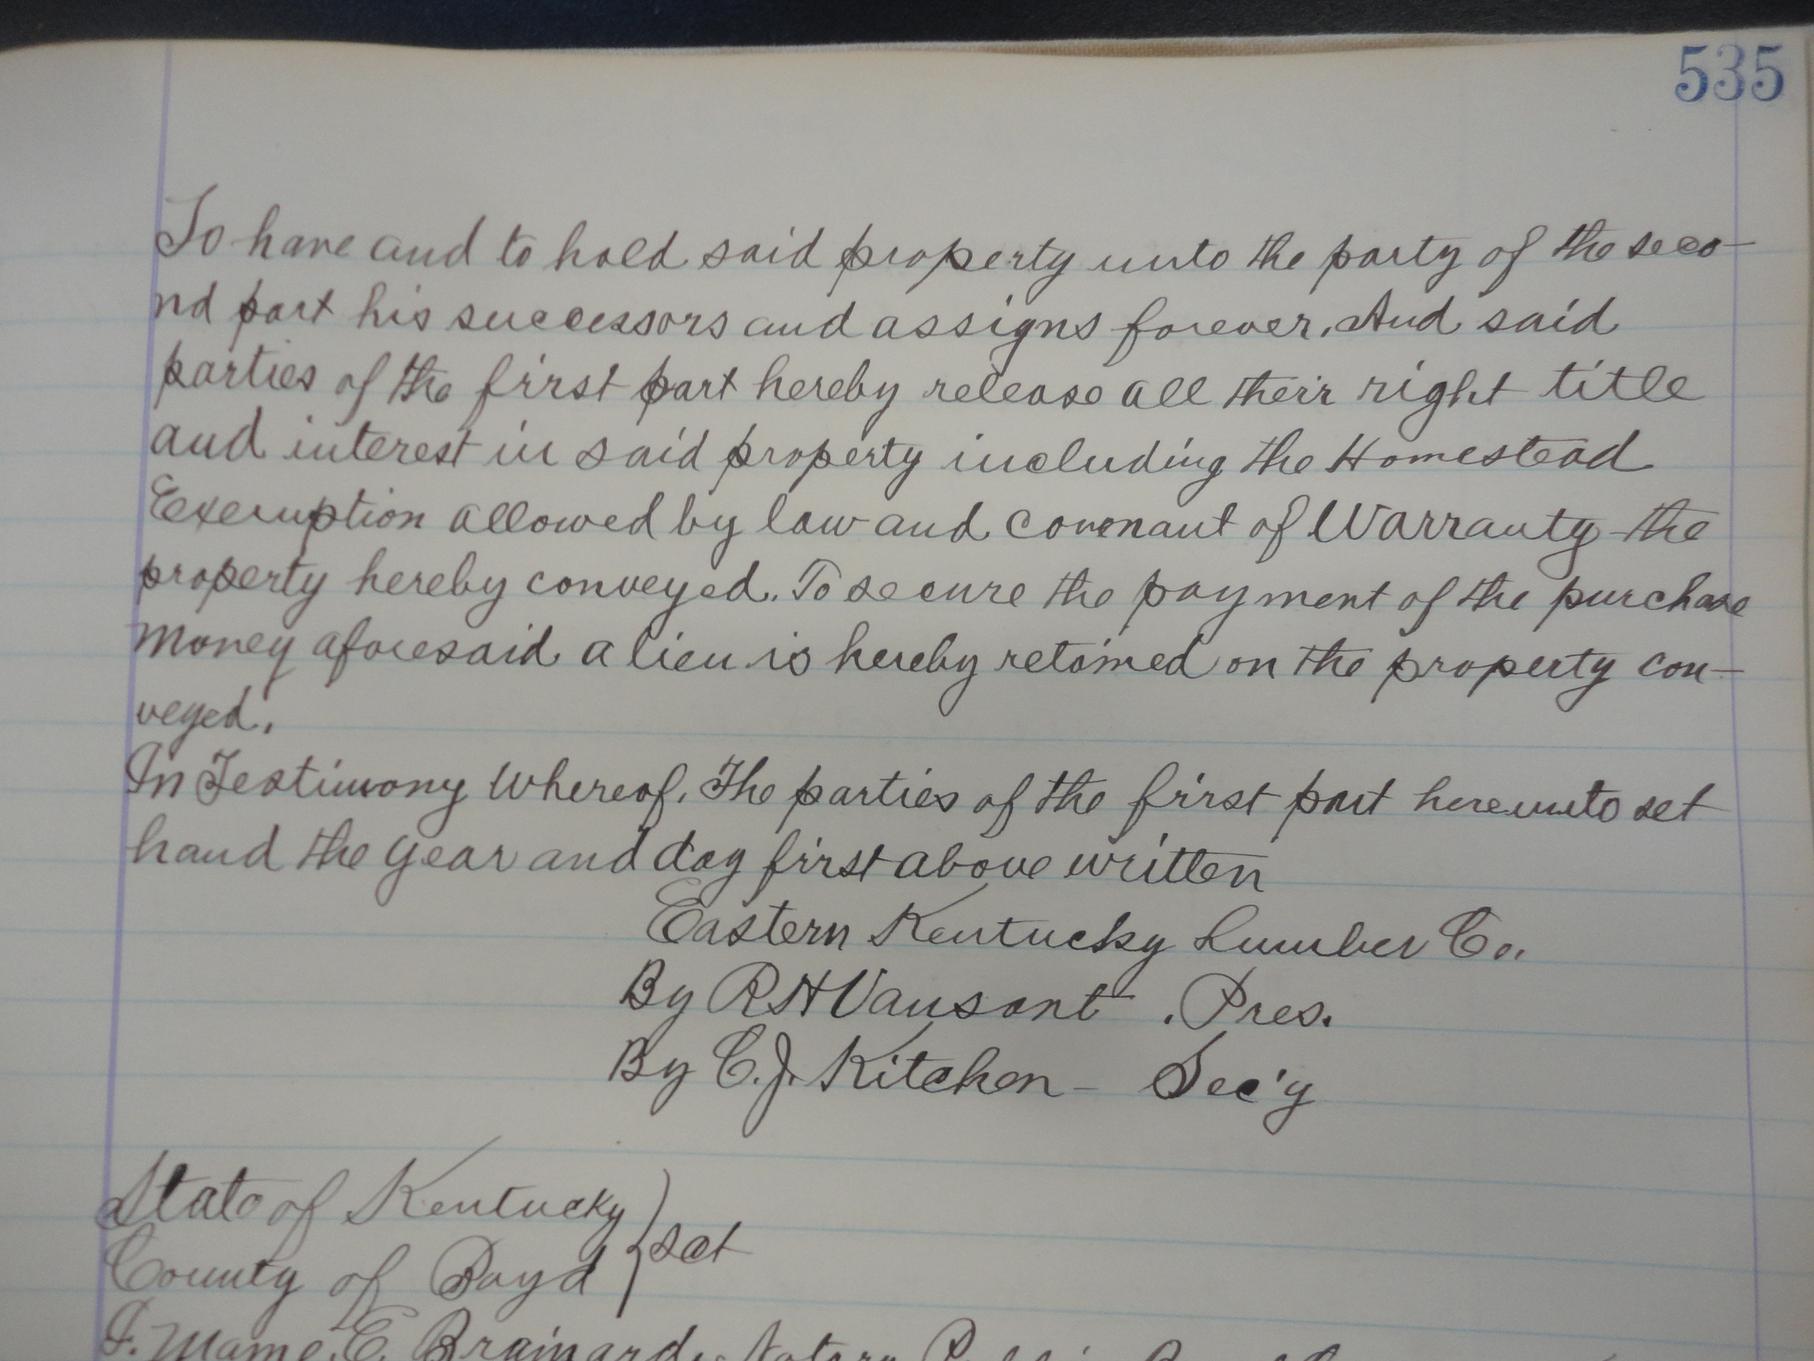 535
To have and to hold said property unto the party of the seco-
nd part his successors and assigns forever. And said
parties of the first part hereby release all their right title
and interest in said property including the Homestead
Exemption allowed by law and covenant of Warranty the
property hereby conveyed. To secure the payment of the purchase
Money aforesaid a lien is hereby retained on the property con-
veyed.
In Testimony Whereof, The parties of the first part hereunto set
hand the year and day first above written
Eastern Kentucky Lumber Co.
By R H Vansant . Pres.
By C. J. Kitchen - Sec'y
State of Kentucky
County of Boyd } sct
I. Mame. E. Brainard, Notary Public